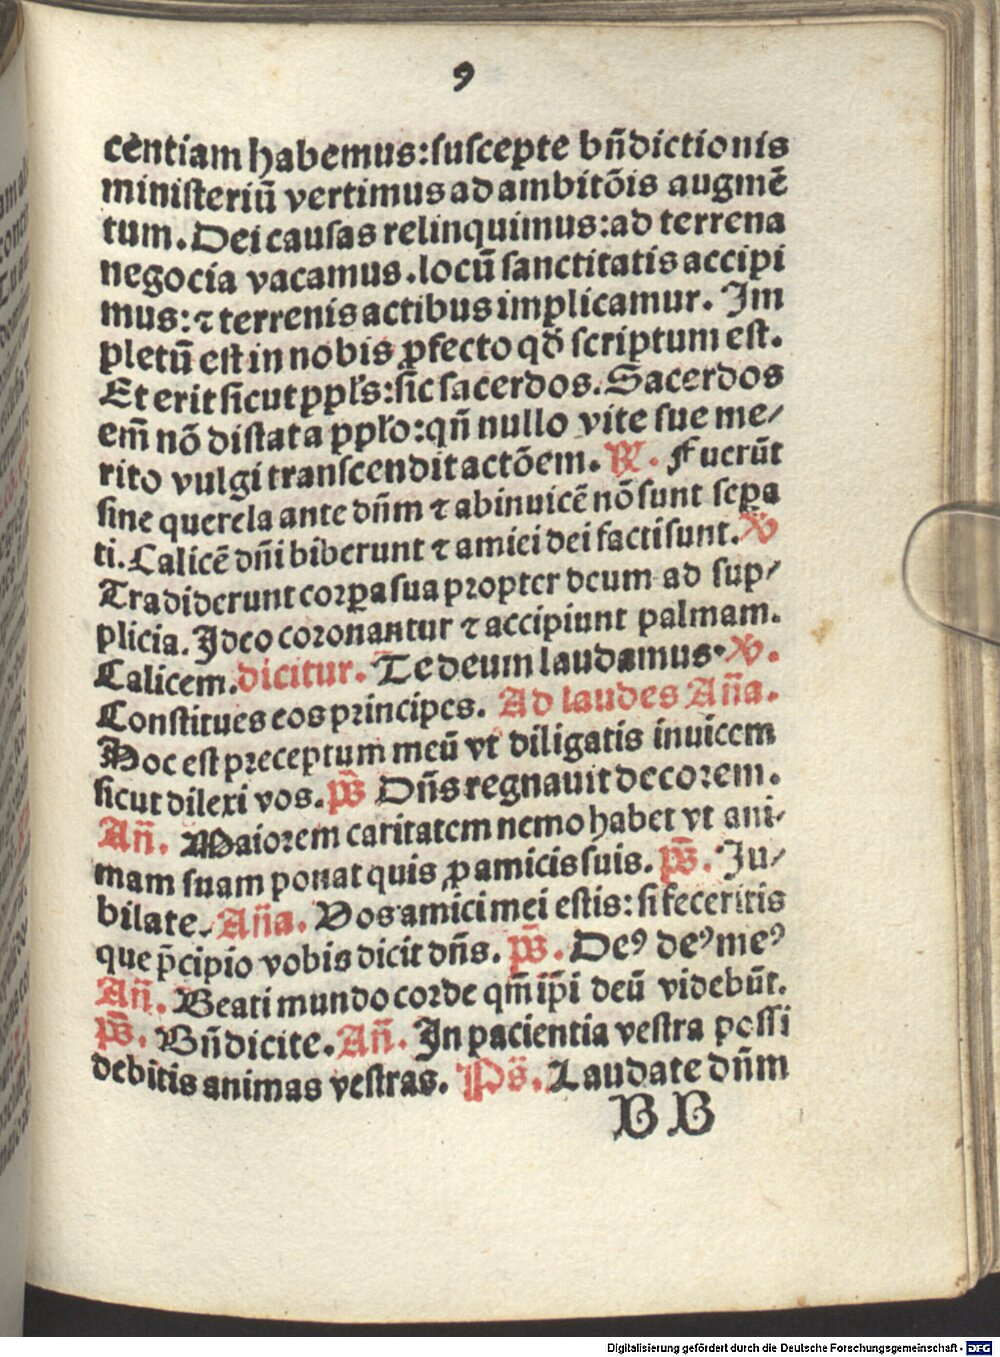 9
centiam habemus:suscepte bn̄dictionis
ministeriū vertimus ad ambitōis augmē
tum. Dei causas relinquimus:ad terrena
negocia vacamus.locū sanctitatis accipi
mus:⁊ terrenis actibus implicamur. Im
pletū est in nobis ꝓfecto qđ scriptum est.
Et erit sicut ppl̄s:sic sacerdos. Sacerdos
em̄ nō distat a pplo:qn̄ nullo vite sue me/
rito vulgi transcendit actōem. ℟. Fuerūt
sine querela ante dn̄m ⁊ abinuicē nō sunt sepa
ti. Calicē dn̄i biberunt ⁊ amici dei facti sunt. ℣
Tradiderunt corꝑa sua propter deum ad sup/
plicia. Ideo coronantur ⁊ accipiunt palmam.
Calicem.dicitur. Te deum laudamus. ℣.
Constitues eos principes. Ad laudes An̄a.
Hoc est preceptum meū vt diligatis inuicem
sicut dilexi vos. ps̄ Dn̄s regnauit decorem.
An̄. Maiorem caritatem nemo habet vt ani/
mam suam ponat quis ꝓ amicis suis. ps̄. Iu/
bilate. An̄a. Vos amici mei estis: si feceritis
que p̄cipio vobis dicit dn̄s. ps̄. Deꝰ deꝰ meꝰ
An̄. Beati mundo corde qm̄ ip̄i deū videbūt.
ps̄. Bn̄dicite. An̄. In pacientia vestra possi
debitis animas vestras. Ps̄. Laudate dn̄m
B B
Digitalisierung gefördert durch die Deutsche Forschungsgemeinschaft - DFG